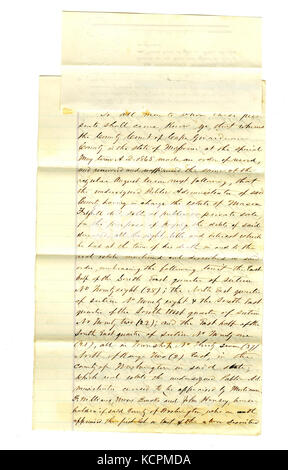 To All men to whom these pre-
sents shall come Know ye, that whereas
the County Court of Cape Girardeau
County in the State of Missouri at the special
May term A.D. 1865 made an order of record,
and renewed and the same at the
regular August term next following, that
the undersigned Public Administrator of said
County having in charge the estate of Mason
do sell at public or private sale,
for the purpose of paying the debts of said
deceased, all the right title and interest which
he had at the time of his death in and to the
real estate mentioned and described in said
order, embracing the following, to wit: the East
half of the South East quarter of section
No Twenty eight (28); the North East quarter
of section No Twenty eight & the South East
quarter of the South West quarter of section
No Twenty two (22) and the East half of the
South East quarter of section No Twenty one
(21), all in Township No Thirty seven (37)
North of Range Two (2) East, in the
County of Washington in said state,
which real estate the undersigned Public Ad-
ministrator caused to be appraised by
Williams, and John house-
holders of said County of Washington, who on oath
appraised the first and last of the above described
alamy
Image ID: CPMDA
www.alamy.com